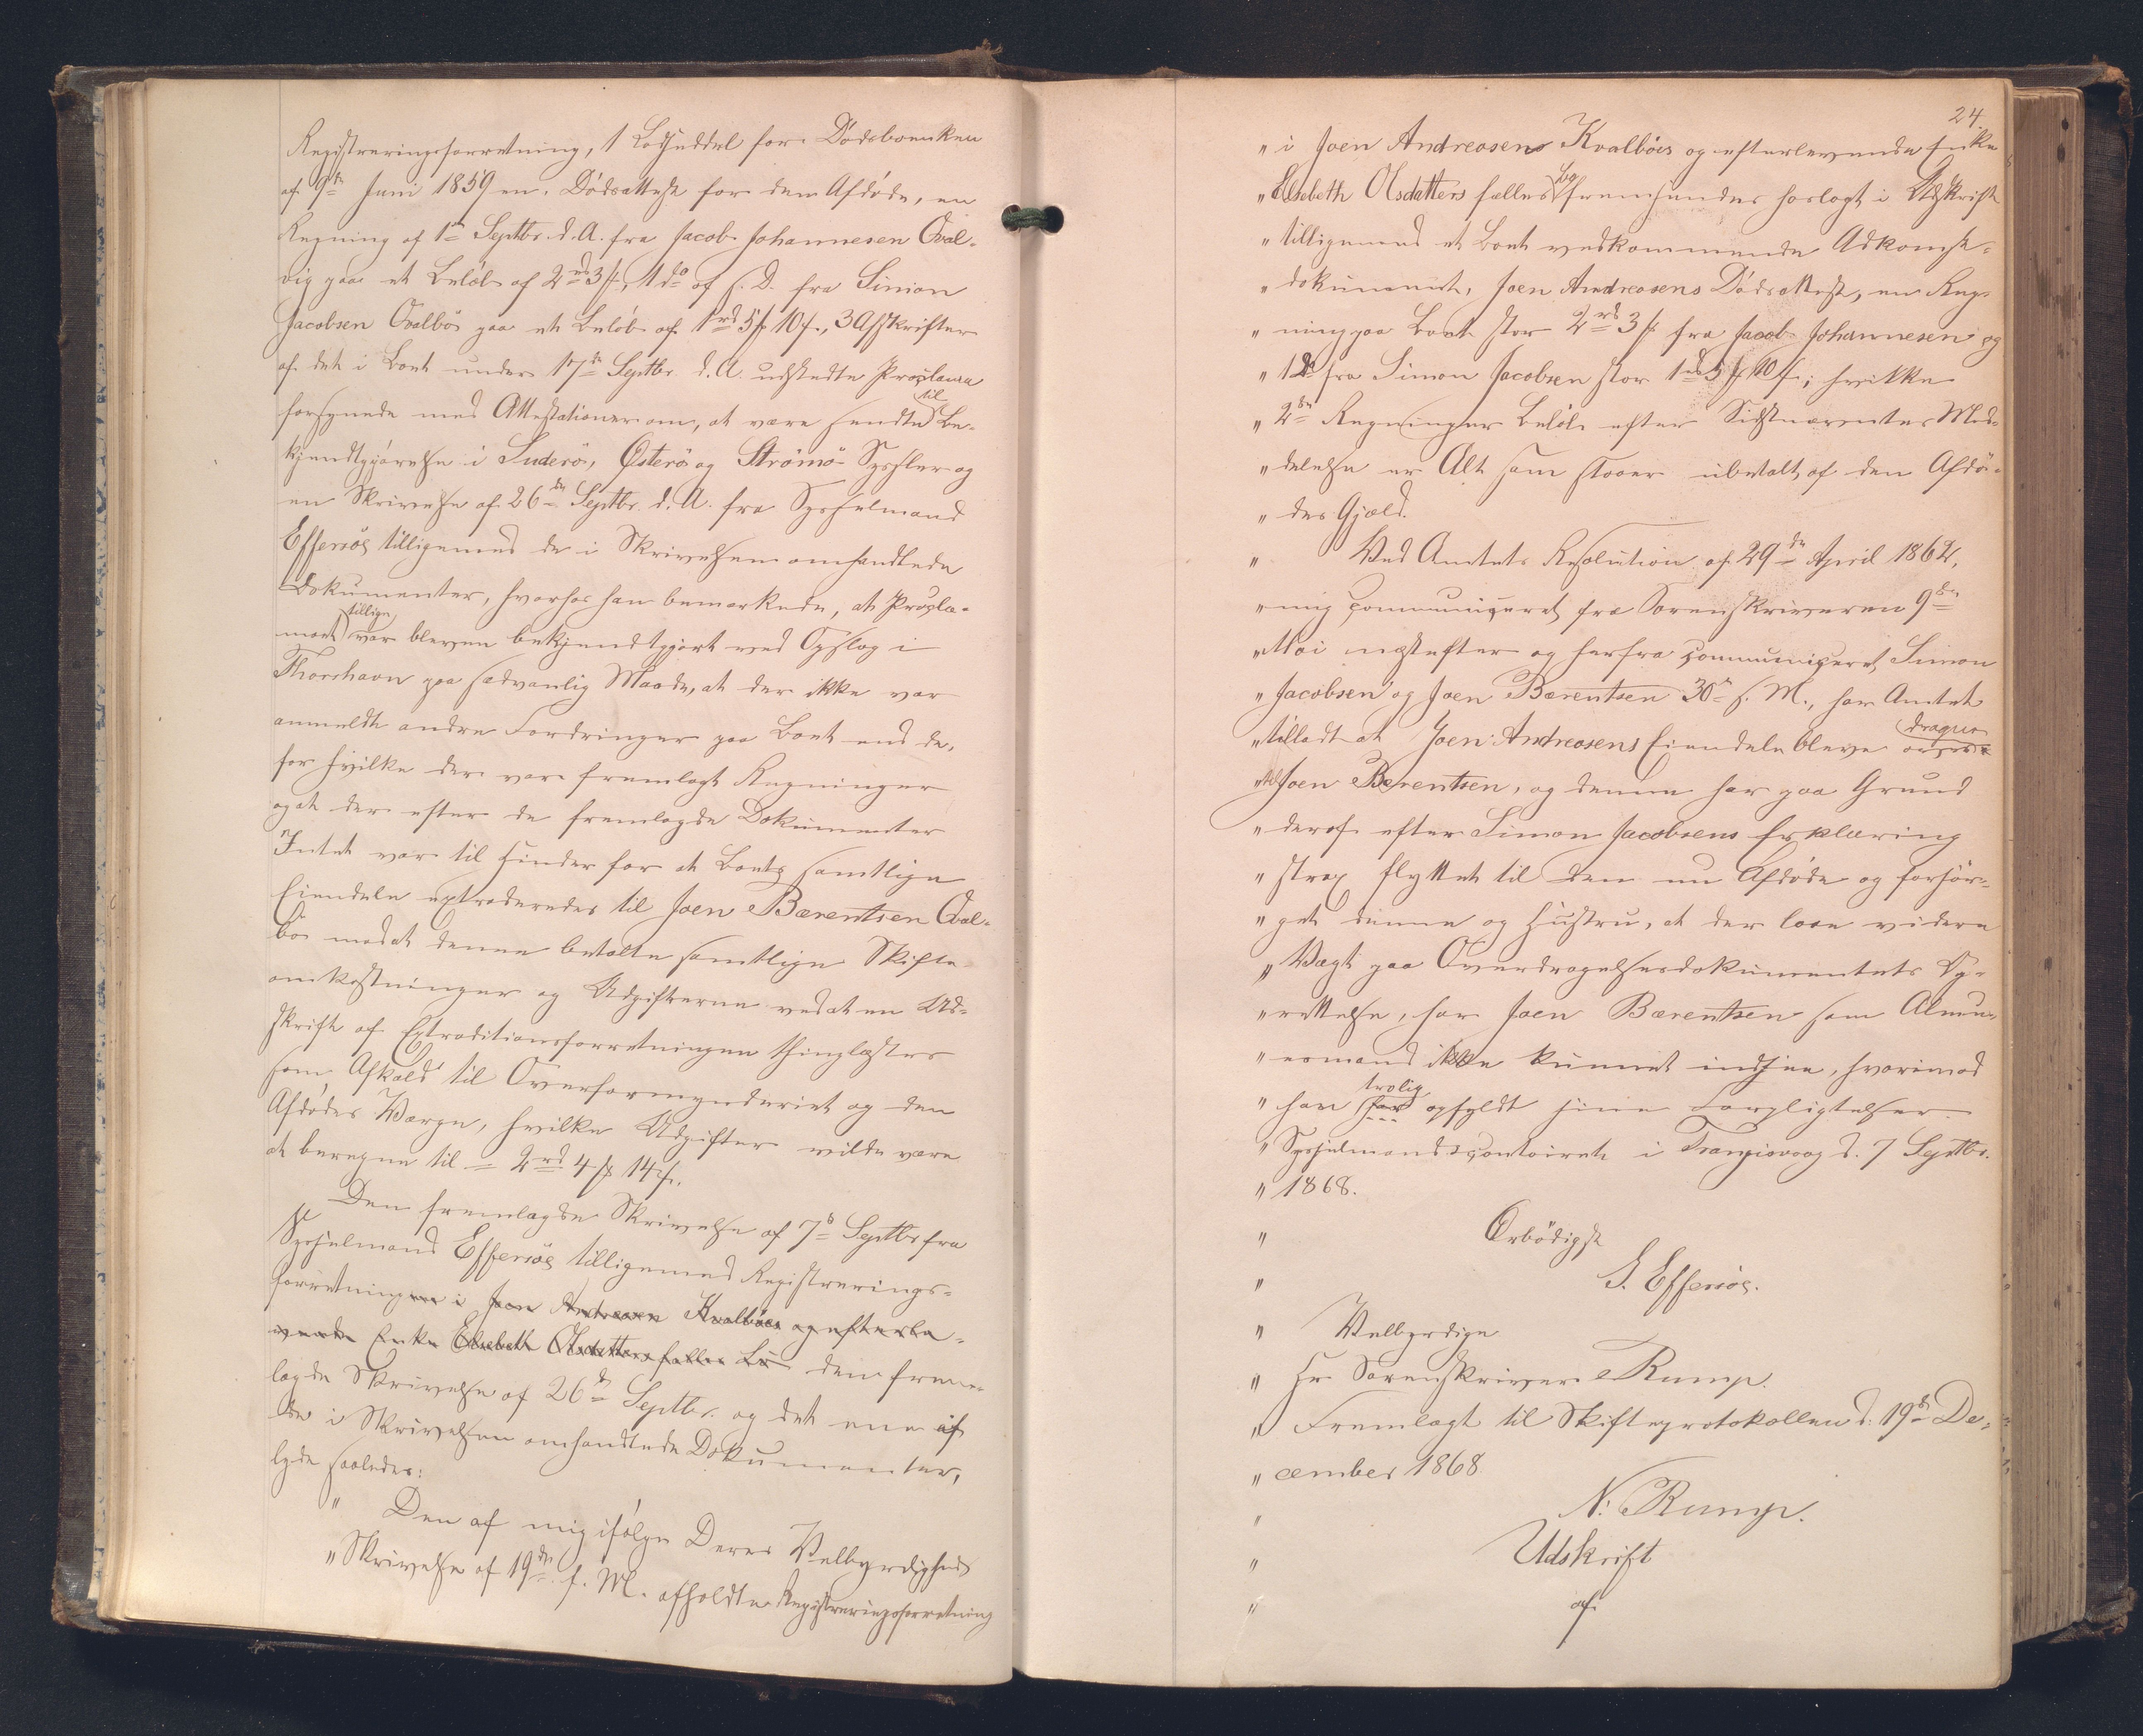 Registreringsforretning, 1 Lodseddel for Dødsboenken
af 9de Juni 1859 en Dødsattest for den Afdøde, en
Regning af 1ste Septbr. d. A. fra Jacob Johannesen Qval-
vig paa et Beløb af 2rd 3 ſk, 1 do af s. D. fra Simon
Jacobsen Qvalbö paa et Beløb af 1rd 5 ſk 10 ſ., 3 Afskrifter
af det i Boet under 17de Septbr. d. A. udstedte Proclama
forsynede med Attestationer om, at være sendte til Be-
kjendtgjørelse i Suderö, Østerö og Strömö Sysler og
en Skrivelse af 26de Septbr. d. A. fra Sysselmand
Effersöe tilligemed de i Skrivelsen omhandlede
Dokumenter, hvorhos han bemærkede, at Procla-
maet tillige var bleven bekjendtgjort ved Opslag i
Thorshavn paa sædvanlig Maade, at der ikke var
anmeldt andre Fordringer paa Boet end de,
for hvilke der var fremlagt Regninger
og at der efter de fremlagde Dokumenter
Intet var til Hinder for at Boets samtlige
Eiendele extraderedes til Joen Bærentsen Qval-
bö mod at denne betalte samtlige Skifte-
omkostninger og Udgifterne ved at en Ud-
skrift af Extraditionsforretningen thinglæstes
som Afkald til Overformynderiet og den
Afdødes Værge, hvilke Udgifter vilde være
at beregne til = 2rd 4 ſk 14 ſ.
Den fremlagde Skrivelse af 7de Septbr fra
Sysselmand Effersöe tilligemed Registrerings-
forretningen i Joen Andreasen Kvalböes og efterle-
vende Enke Elsebeth Olsdatters fælles Bo den frem-
lagde Skrivelse af 26de Septbr. og det ene af
de i Skrivelsen omhandlede Dokumenter,
lyde saaledes:
" Den af mig ifölge Deres Velbyrdigheds
" Skrivelse af 19de f. M. afholdte Registreringsforretning
24.
" i Joen Andreasens Kvalböes og efterlevende Enke
" Elsebeth Olsdatters fælles Bo fremsendes hoslagt i Udskrift
" tilligemed et Boet vedkommende Adkomst-
" dokument, Joen Andreasens Dødsattest, en Reg-
" ning paa Boet stor 2rd 3 ſk fra Jacob Johannesen og
" 1 do fra Simon Jacobsen stor 1rd 5 ſk 10 ſ.; hvilke
" 2de Regninger Beløb efter Sidstnævntes Med-
" delelse er Alt som staaer ubetalt af den Afdö-
" des Gjæld.
" Ved Amtets Resolution af 29de April 1862,
" mig communiceret fra Sorenskriveren 9de
" Mai næstefter og herfra communiceret Simon
" Jacobsen og Joen Bærentsen 30te s. M., har Amtet
" tilladt at Joen Andreasens Eiendele bleve overdragne
" til Joen Bærentsen, og denne har paa Grund
" deraf efter Simon Jacobsens Erklæring
" strax flyttet til den nu Afdøde og forsör-
" get denne og Hustru, at der laae videre
" Vægt paa Overdragelsesdokumentets Op-
" rettelse, har Joen Bærentsen som Almu-
" esmand ikke kunnet indsee, hvorimod
" han har trolig opfyldt sine Forpligtelser.
" Sysselmandscontoiret i Trangisvaag d. 7 Septbr.
" 1868.
" Ærbödigst
" G. Effersöe.
" Velbyrdige
" Hr. Sorenskriver Rump.
" Fremlagt til Skifteprotokollen d: 19de De-
" cember 1868
" N: Rump.
" Udskrift
" af